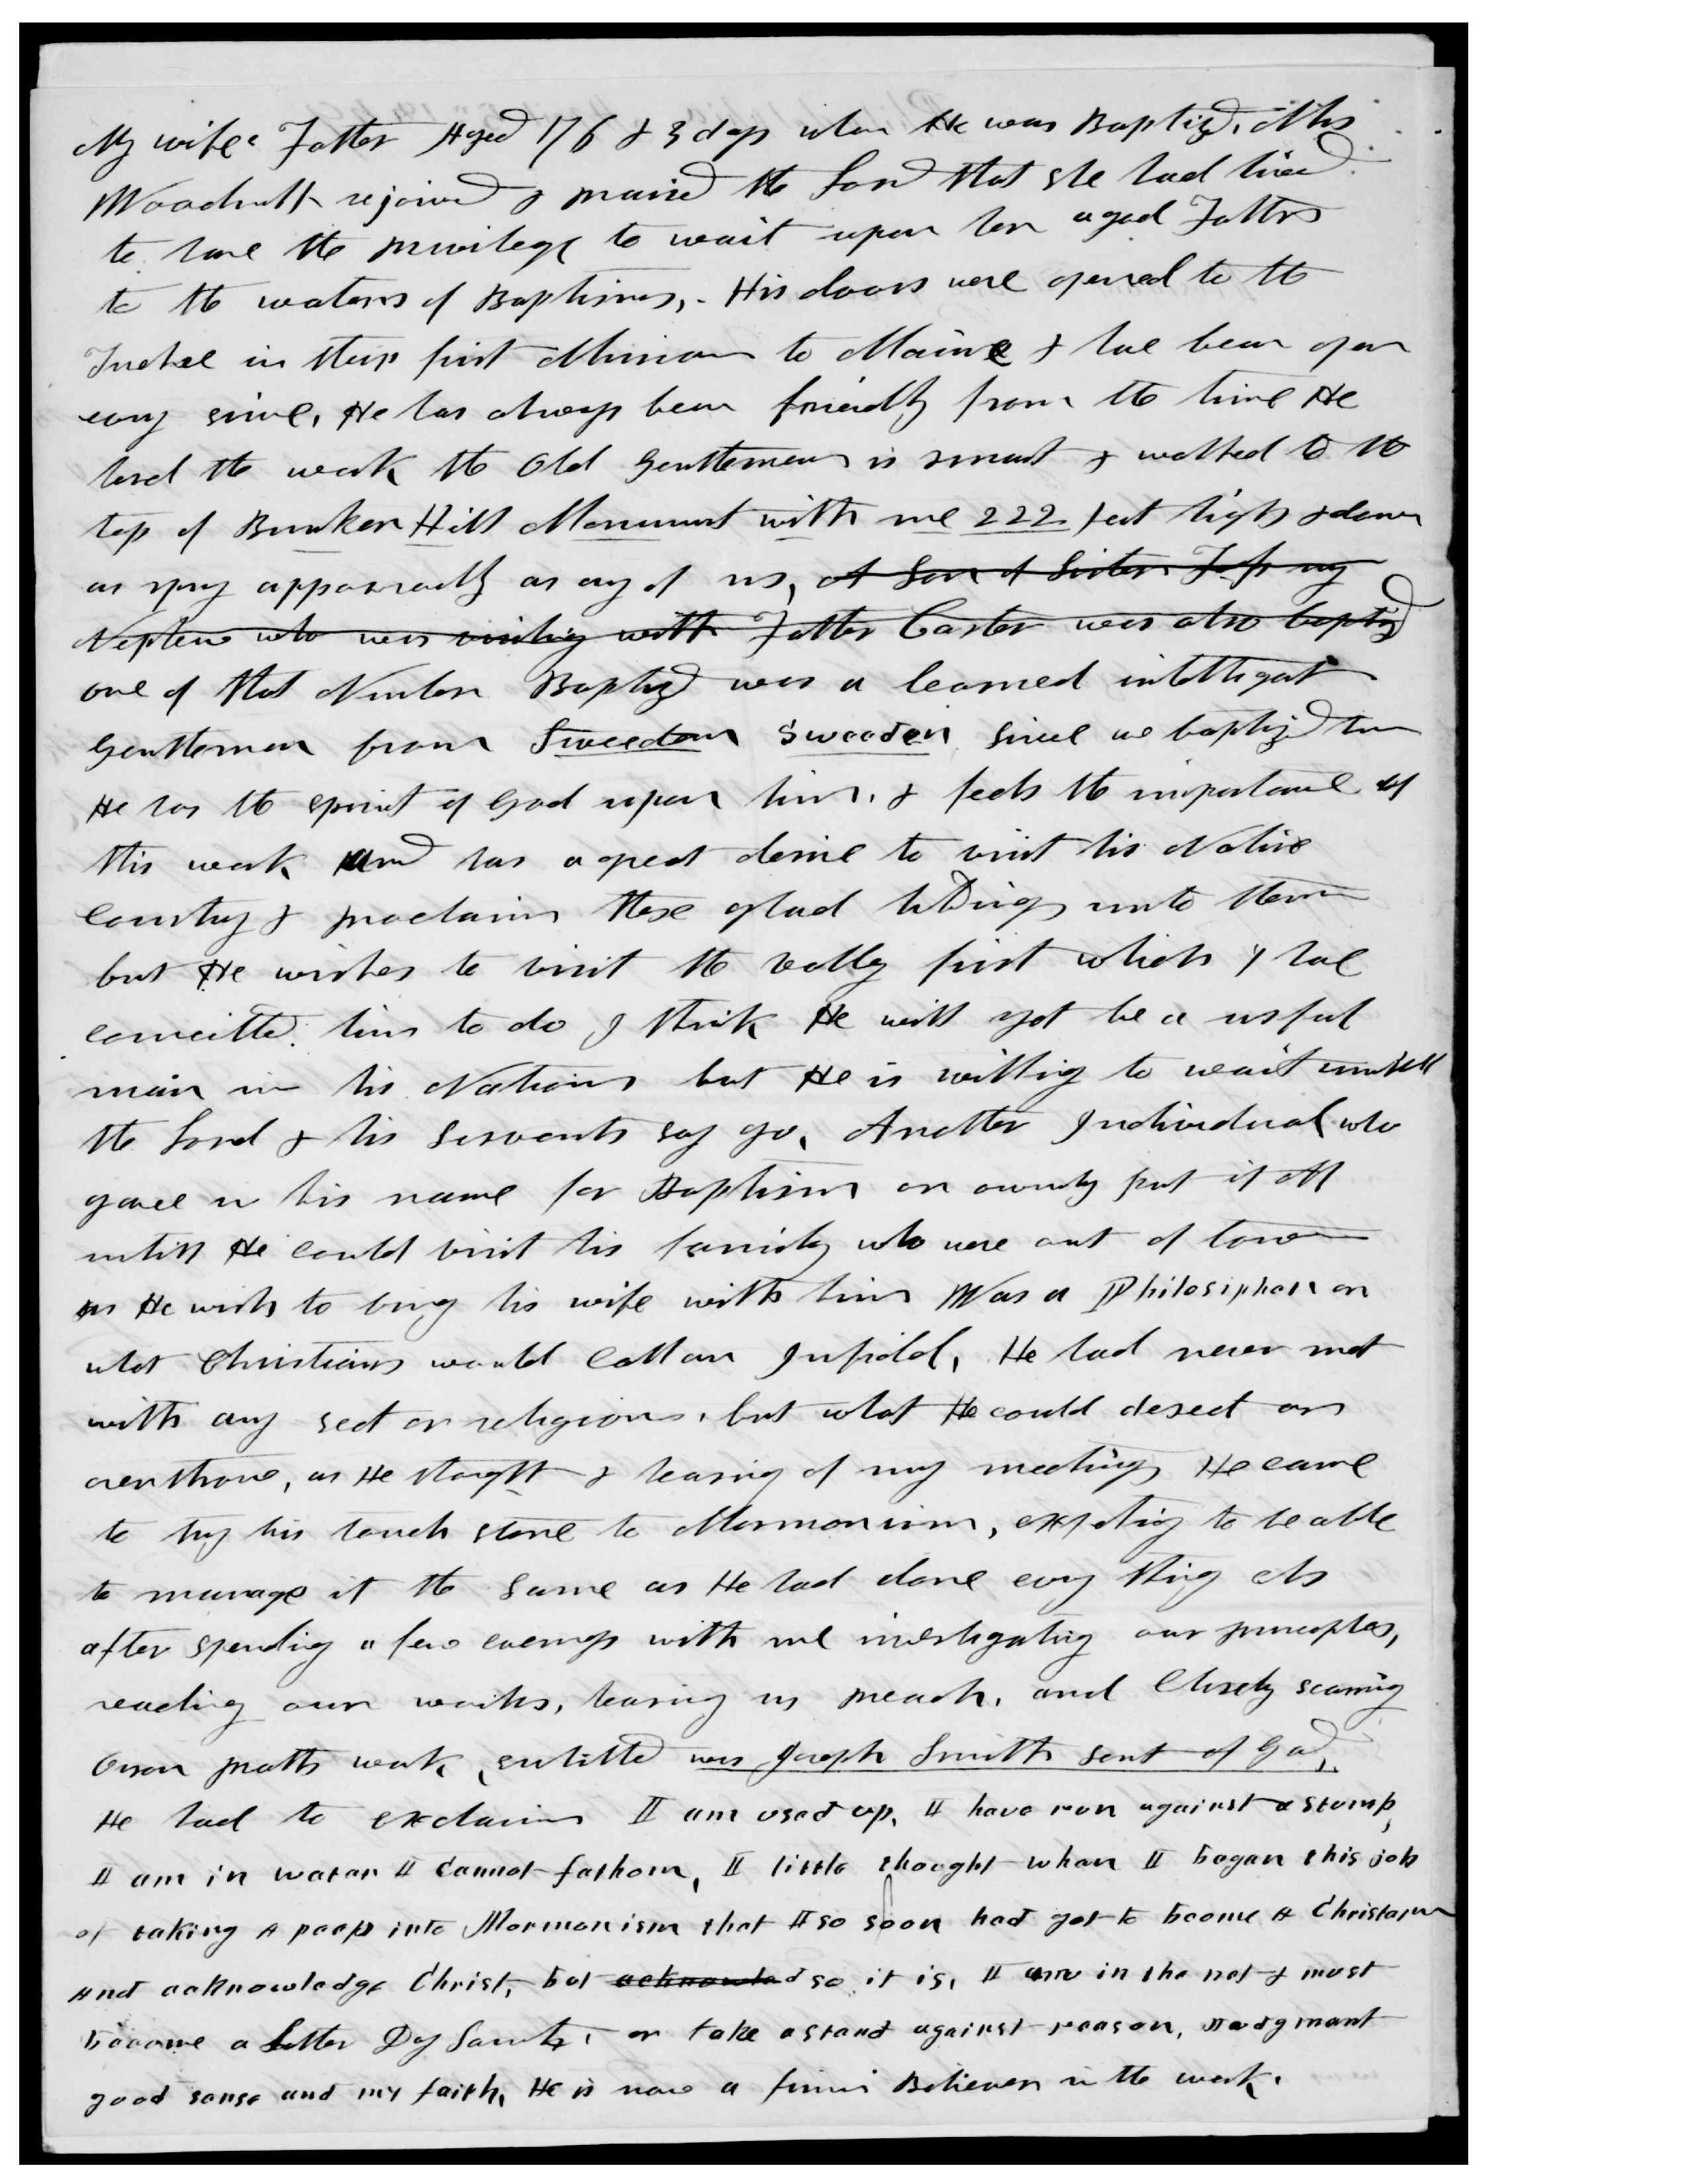 My wifes Father Aged 76 & 3 days when He was Baptized, Mrs
Woodruff rejoiced & praised the Lord that she had lived
to have the privilege to wait upon her aged Father
to the waters of Baptism,. His doors were opened to the
Twelve in their first Mission to Maine & have been open
evry since, He has always been friendly from the time He
herd the work the Old Gentleman is smart & walked to the
top of Bunker Hill Monument with me 222 feet high & down
as spry apparently as any of us, A Son of Sister Foss my
Nephew who was visiting with Father Carter was also baptized
one of that Number Baptized was a learned intelligent
Gentleman from Sweedan Sweeden since we baptized him
He has the spirit of God upon him, & feels the importance of
this work and has a great desire to visit his Native
Country & proclaim these glad tidings unto them
but He wishes to visit the valley first which I have
councilled him to do I think He will yet be a usful
man in his Nation but He is willing to wait untill
the Lord & his servants say go, Another Individual who
gave in his name for Baptism on ownly put it off
untill He could visit his family who were out of town
as He wish to bring his wife with him Was a Philosipher or
what Christians would call an Infidel, He had never met
with any sect or religion, but what He could desect or
overthrow, as He thought & hearing of my meetings He came
to try his touch stone to Mormonism, expeting to be able
to manage it the same as He had done evry thing els
after spending a few evenings with me investigating our principles,
reading our works, hearing us preach, and Closely scaning
Orson pratts work entitled was Joseph Smith sent of God,
He had to exclaim I am used up, I have run against a stump,
I am in water I cannot fathom, I little thought when I began this job
of taking A peep into Mormonism that I so soon had got to become A Christian
and acknowledge Christ, but acknowled so it is, I am in the net & must
become a Latter Day Saint, or take a stand against reason, Judgment
good sense and my faith, He is now a firm Believer in the work.